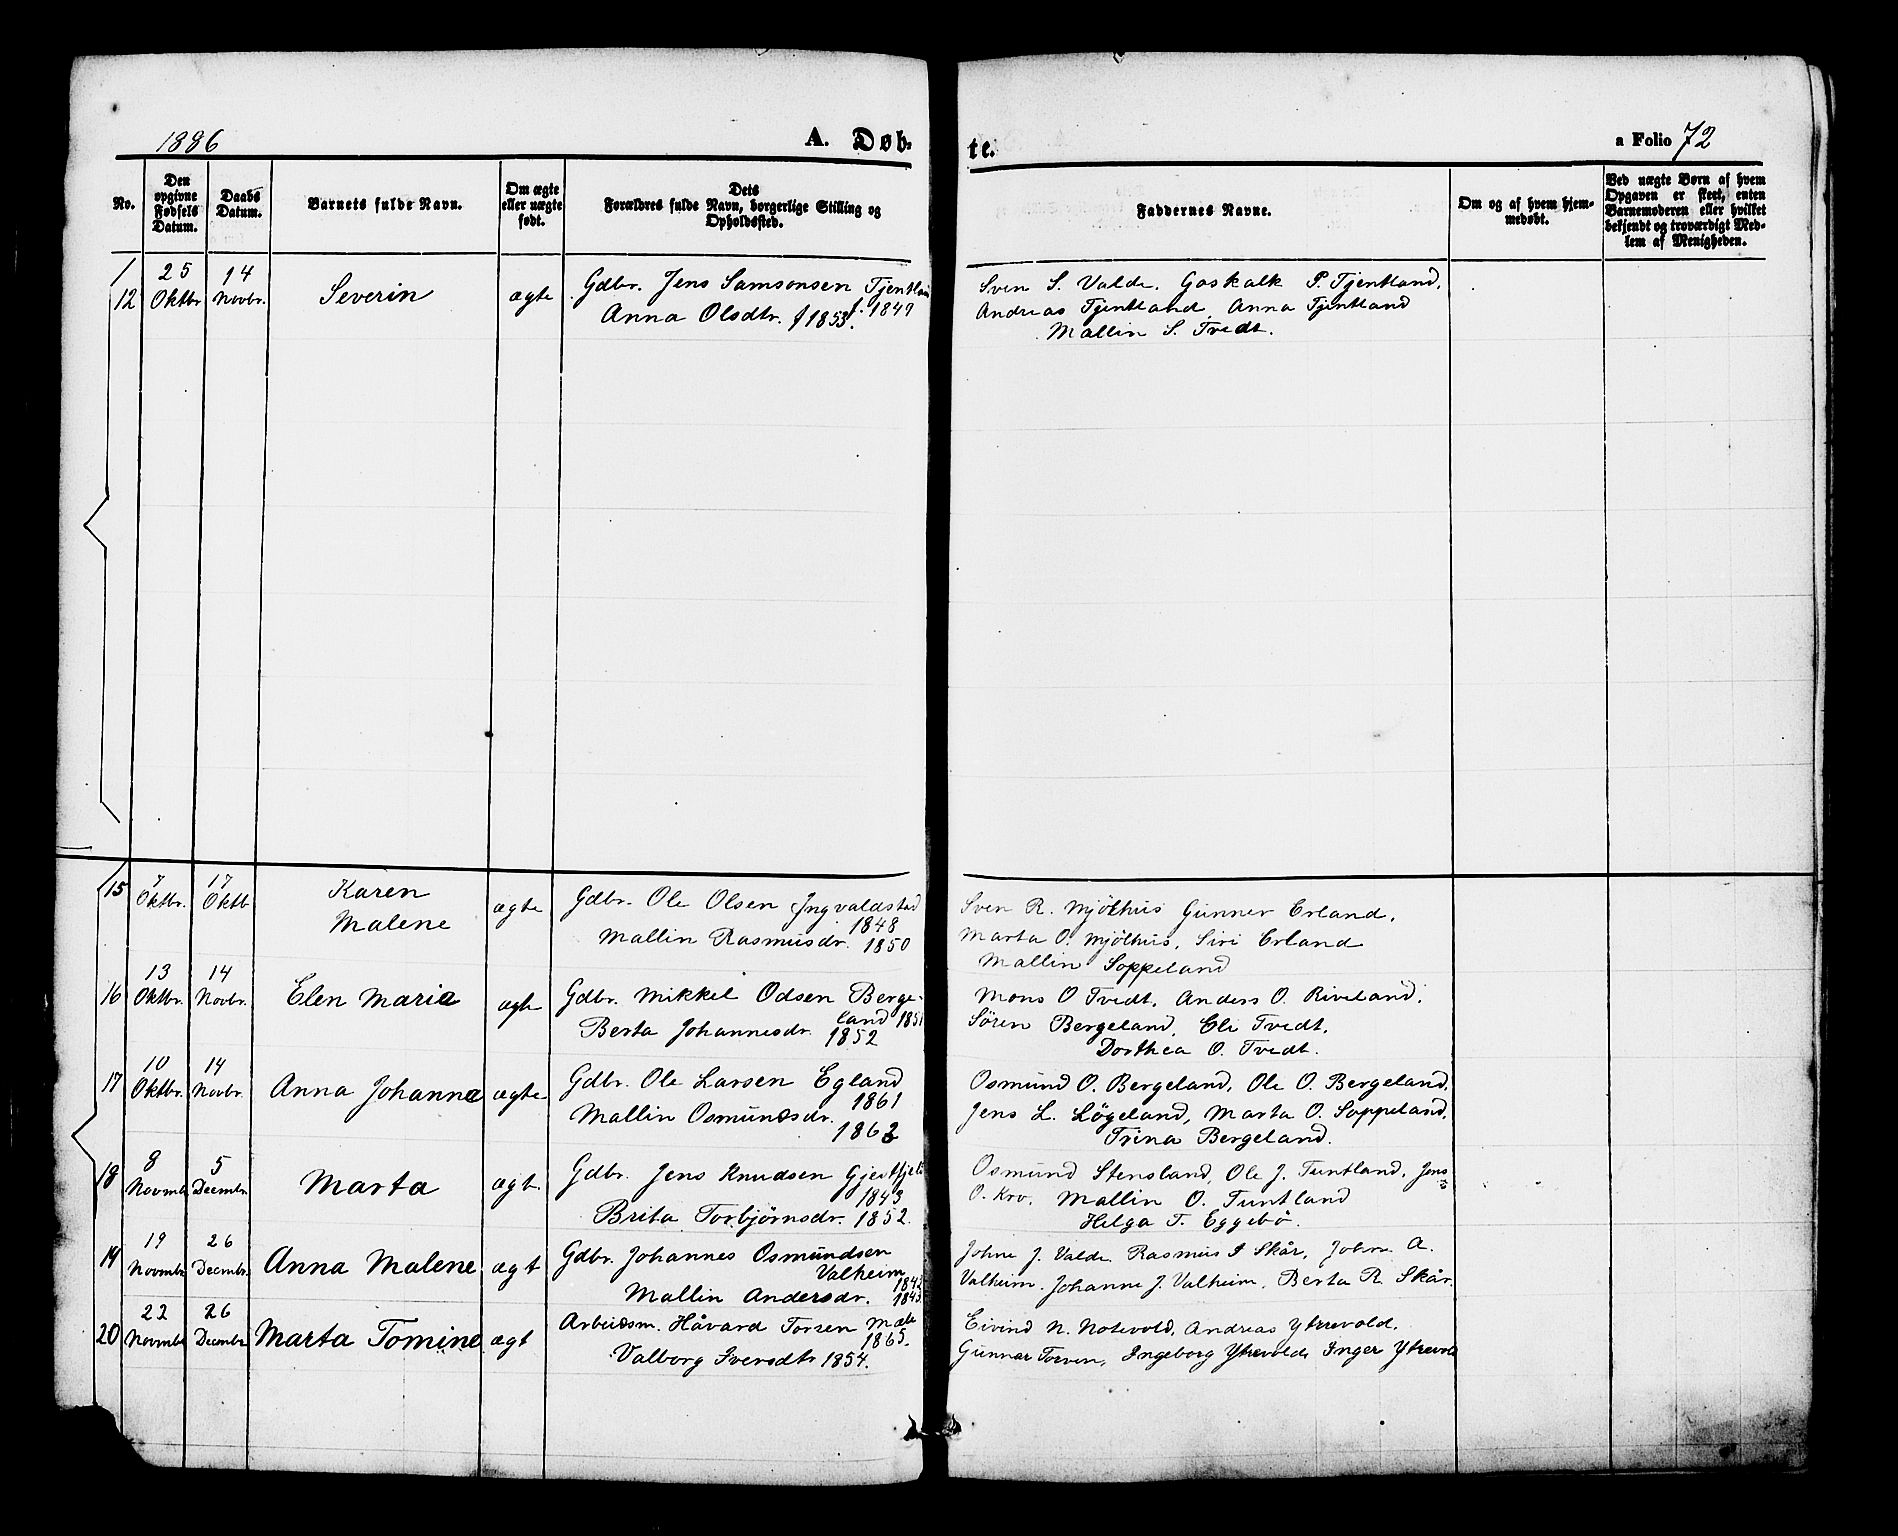 1886 A. Døb-
te. a Folio 72
No. Den opgivne Fødsels Datum. Daabs Datum. Barnets fulde Navn. Om ægte eller uægte født. Dets Forældres fulde Navn, borgerlige Stilling og Opholdssted. Faddernes Navne. Om og af hvem hjemmedøbt. Ved uægte Børn af hvem Opgaven er skeet, enten Barnemoderen eller hvilket bekjendt og troværdigt Medlem af Menigheden.
12 25 Oktbr 14 Novbr. Severin ægte Gdbr. Jens Samsonsen
Anna Olsdtr. f 1853. f. 1849
Sven S. Valde. Gaskalk P. Tjentland,
Andreas Tjentland, Anna Tjentland
Mallin S. Tvedt.
15 7 Oktbr. 17 Oktb Karen
Malene ægte Gdbr. Ole Olsen Ingvaldstad
1848
Mallin Rasmusdr. 1850
Sven R. Mjølhus Gunner Erland,
Marta O. Mjølhus, Siri Erland
Mallin Soppeland
16 13 Oktbr. 14 Novbr. Elen Maria ægte Gdbr. Mikkel Odsen Berge-
land 1851
Berta Johannesdr. 1852
Mons O Tvedt, Anders O. Riveland,
Søren Bergeland, Eli Tvedt,
Dorthea O. Tvedt.
17 10 Oktbr. 14 Novbr. Anna Johanna ægte Gdbr. Ole Larsen Egland
1861
Mallin Osmundsdr.
1862
Osmund O. Bergeland, Ole O. Bergeland,
Jens L. Løgeland, Marta O. Soppeland,
Trina Bergeland.
18 8 Novmbr 5 Decmbr. Marta ægt. Gdbr. Jens Knudsen
1843
Brita Torbjørnsdr. 1852.
Osmund Stensland, Ole J. Tuntland, Jens
O. Kro, Mallin O. Tuntland
Helga T. Eggebø.
19 19 Novmbr 26 Decmbr. Anna Malene ægt Gdbr. Johannes Osmundsen
Valheim
Mallin Andersdr. 1843.
Johne J. Valde Rasmus I Skår, A.
Valheim, Johanne J. Valheim, Berta R. Skår.
20 22 Novmbr 26 Decmbr Marta Tomine ægt Arbeidsm. Håvard Torsen
1865.
Valborg Iversdtr 1854.
Eivind N. Notevold, Andreas Ytrevold,
Gunnar Torsen, Ingeborg Ytrevold, Inger Ytrevold